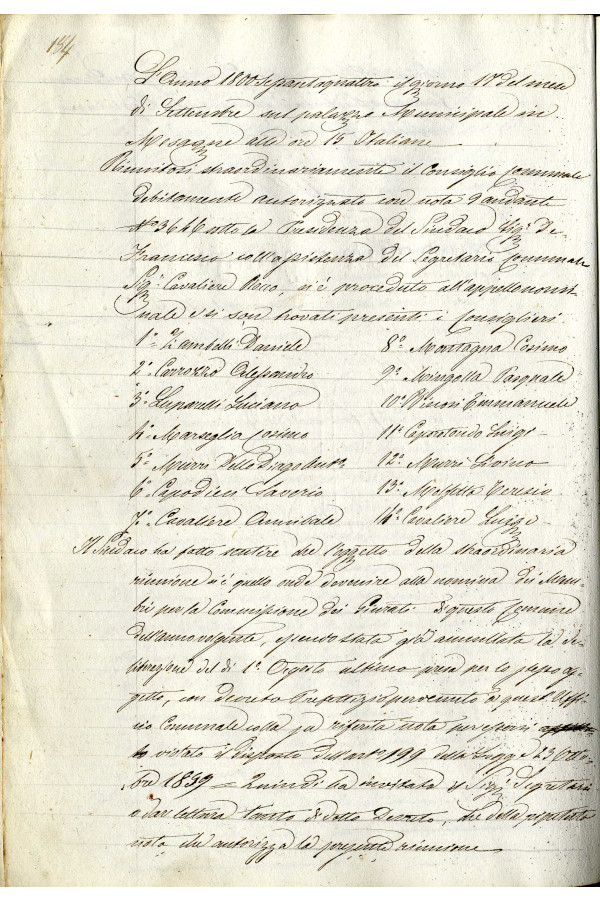 154
L'Anno 1800 Settantaquattro il giorno 17 del mese
di Settembre sul palazzo Municipale in
Mesagne alle ore 15 Italiane
Riunitosi straordinariamente il Consiglio Communale
debitamente autorizzato con nota 9 andante
N° 3646 sotto la Presidenza del Sindaco Sig.r De-
Francesco coll'assistenza del Segretario Communale
Sig.r Cavaliere Rocco, si è proceduto all'appello nomi-
nale e si son trovati presenti i Consiglieri.
1° Zambelli Daniele 8° Montagna Cosimo
2° Cavrozzo Alessandro 9° Mingolla Pasquale
3° Luparelli Luciano 10° Emmanuele
4° Marseglia Cosimo 11° Caporotondo Luigi
5° Murri Dello Diago Ant.° 12° Murri Livino
6° Capodieci Saverio 13° Molfetta Teresio
7° Cavaliere Annibale 14° Cavaliere Luigi
Il Sindaco ha fatto sentire che l'oggetto della straordinaria
riunione si è quello onde devenire alla nomina dei Mem-
bri per la Commissione dei Giurati di questo Comune
dell'anno volgente, essendo stata già annullata la de-
liberazione del dì 1° Agosto ultimo presa per lo stesso og-
getto, con decreto Prefettizio pervenuto a quest'Uffi-
cio Comunale colla già riferita nota per essersi
violato il disposto dell'art.° 199 della Legge 23 Otto-
bre 1859 = Quindi ha invitato il Sig.r Segretario
a dar lettura tanto di detto Decreto, che della
nota che autorizza la presente riunione